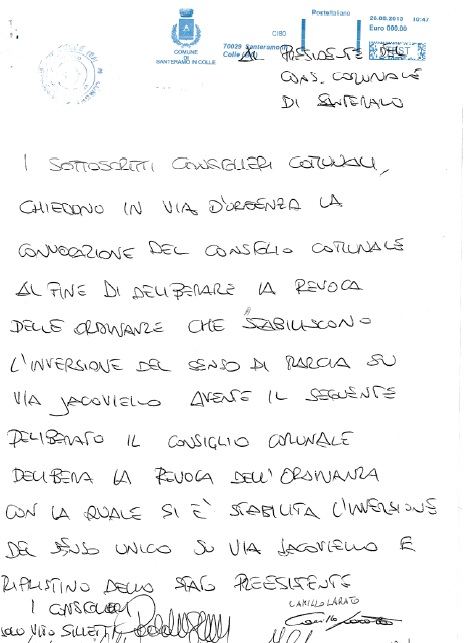 PosteItaliane
26.08.2013 10:47
Euro 000.00
COMUNE
DI
SANTERAMO IN COLLE
70029 Santeramo
Colle
AL PRESIDENTE DEL
CONS. COMUNALE
DI SANTERAMO
I SOTTOSCRITTI CONSIGLIERI COMUNALI,
CHIEDONO IN VIA D'URGENZA LA
CONVOCAZIONE DEL CONSIGLIO COMUNALE
AL FINE DI DELIBERARE LA REVOCA
DELLE ORDINANZE CHE STABILISCONO
L'INVERSIONE DEL SENSO DI MARCIA SU
VIA JACOVIELLO AVENTE IL SEGUENTE
DELIBERATO IL CONSIGLIO COMUNALE
DELIBERA LA REVOCA DELL'ORDINANZA
CON LA QUALE SI E' STABILITA L'INVERSIONE
DEL SENSO UNICO SU VIA JACOVIELLO E
RIPRISTINO DELLO STATO PREESISTENTE
I CONSIGLIERI
CAMILLO LARATO
VITO SILLETTI
Camillo Larato